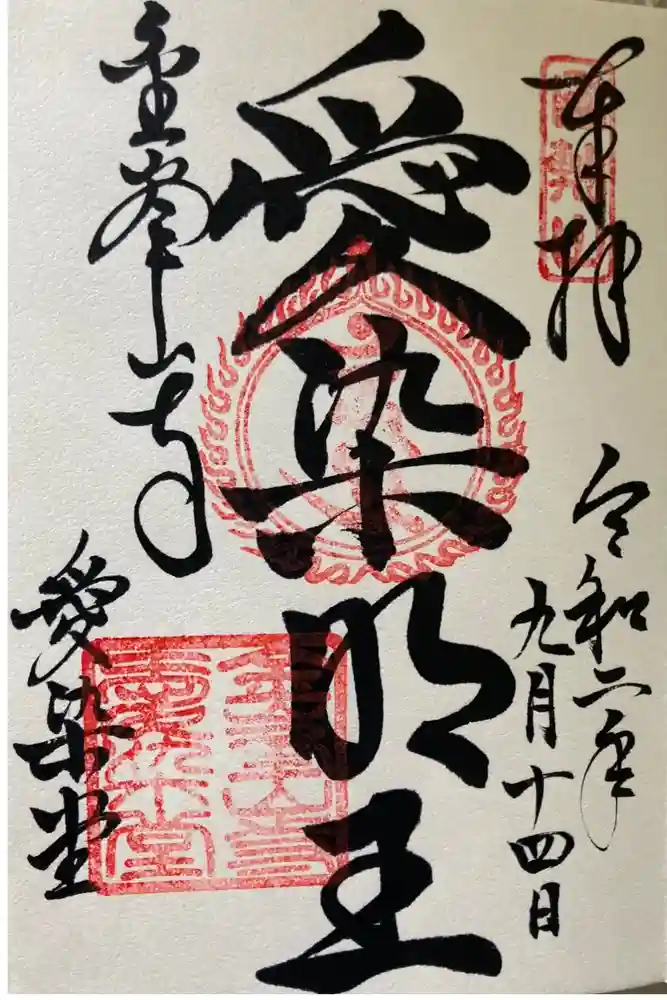 奉拝
令和二年
九月十四日
愛染明王
金峯山寺
愛染堂